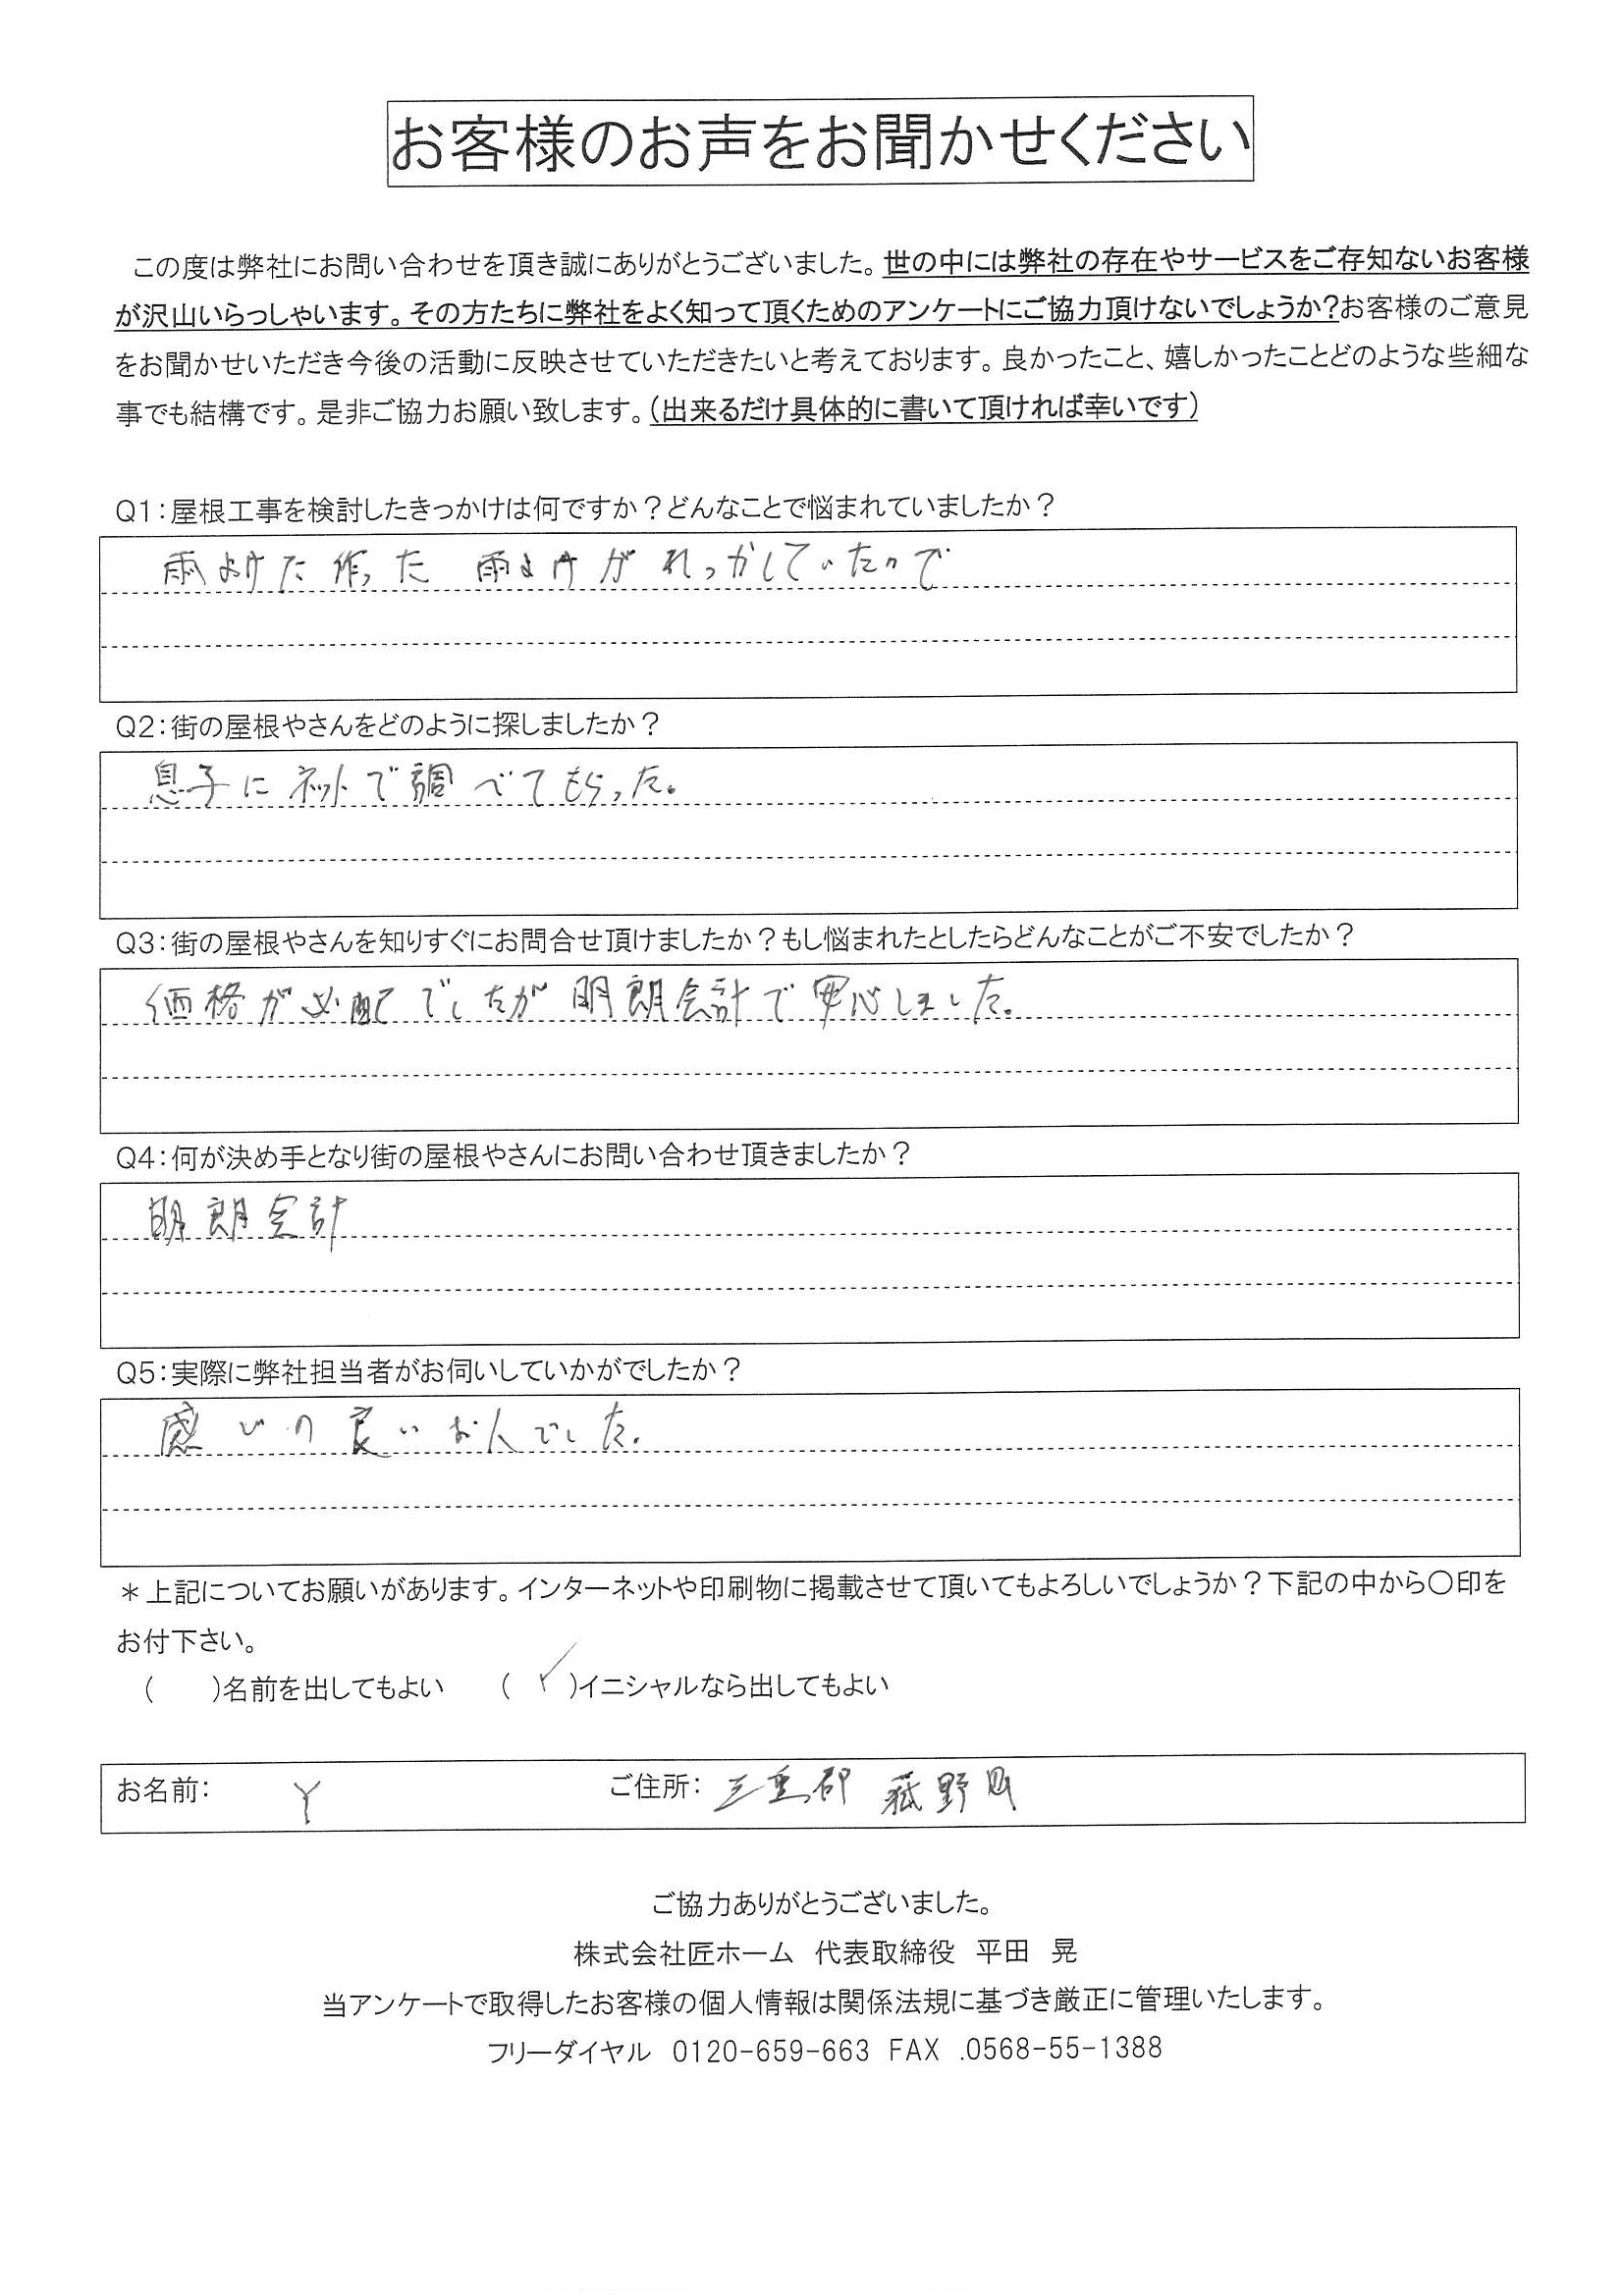 お客様のお声をお聞かせください
この度は弊社にお問い合わせを頂き誠にありがとうございました。世の中には弊社の存在やサービスをご存知ないお客様
が沢山いらっしゃいます。その方たちに弊社をよく知って頂くためのアンケートにご協力頂けないでしょうか?お客様のご意見
をお聞かせいただき今後の活動に反映させていただきたいと考えております。良かったこと、嬉しかったことどのような些細な
事でも結構です。是非ご協力お願い致します。(出来るだけ具体的に書いて頂ければ幸いです)
Q1:屋根工事を検討したきっかけは何ですか?どんなことで悩まれていましたか?
作った 雨よけが れっかしていたので
Q2:街の屋根やさんをどのように探しましたか?
息子に ネットで調べてもらった。
Q3:街の屋根やさんを知りすぐにお問合せ頂けましたか?もし悩まれたとしたらどんなことがご不安でしたか?
価格が心配でしたが 明朗会計で安心しました。
Q4:何が決め手となり街の屋根やさんにお問い合わせ頂きましたか?
明朗会計
Q5:実際に弊社担当者がお伺いしていかがでしたか?
感じの良いお人でした。
＊上記についてお願いがあります。インターネットや印刷物に掲載させて頂いてもよろしいでしょうか?下記の中から〇印を
お付下さい。
(　　)名前を出してもよい　　( ✓ )イニシャルなら出してもよい
お名前: Y　ご住所: 三重郡 菰野町
ご協力ありがとうございました。
株式会社匠ホーム 代表取締役 平田 晃
当アンケートで取得したお客様の個人情報は関係法規に基づき厳正に管理いたします。
フリーダイヤル 0120-659-663 FAX .0568-55-1388